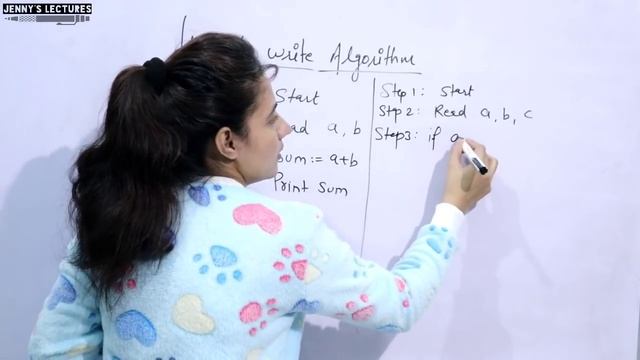 JENNY'S LECTURES
write Algorithm
Start
a, b
Sum := a+b
Print Sum
Step 1: Start
Step 2: Read a, b, c
Step3: if a